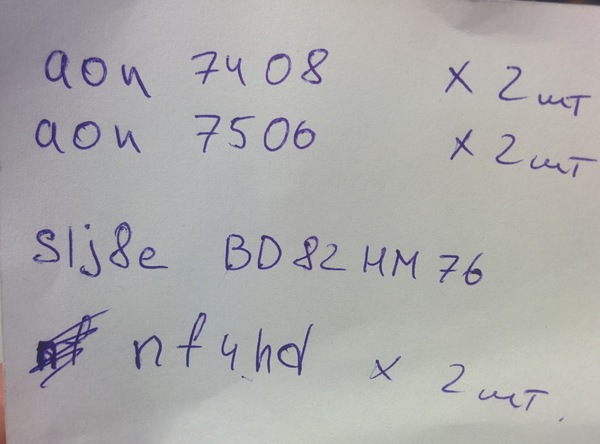 aon 7408 x 2 шт
aon 7506 x 2 шт
slj8e BD82HM76
nf4hd x 2 шт.